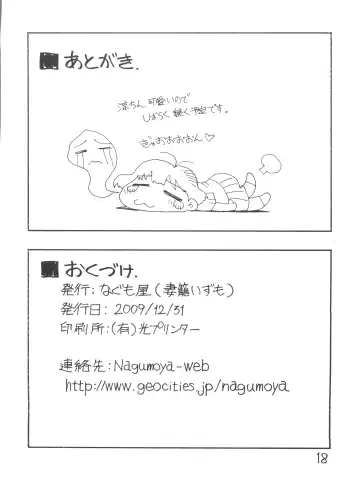 あとがき.
涼ちん可愛いので
しばらく続く予定です。
ぎゅおおおおおん♡
おくづけ.
発行:なぐも屋(妻籠いずも)
発行日:2009/12/31
印刷所:(有)光プリンター
連絡先:Nagumoya-web
http://www.geocities.jp/nagumoya
18